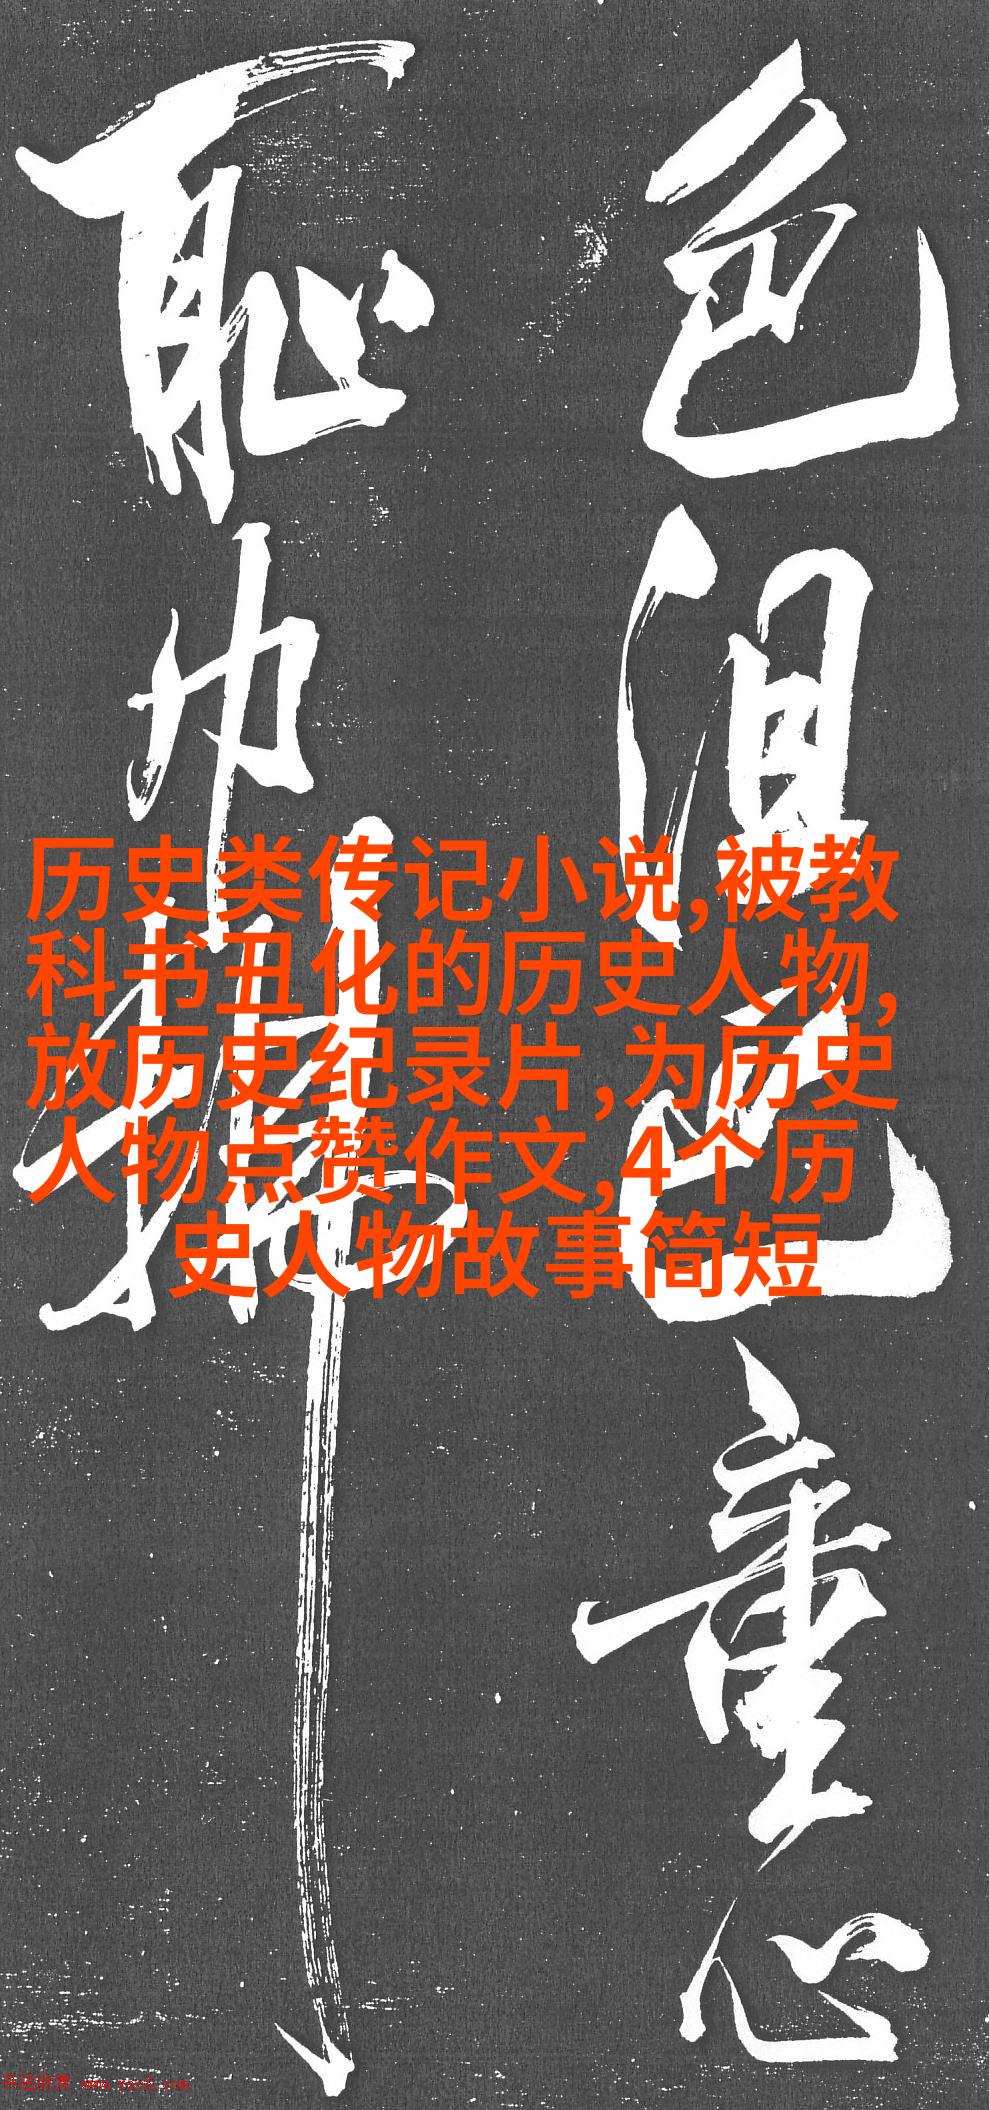 色沮重心
耻巾
历史类传记小说,被教
科书丑化的历史人物,
放历史纪录片,为历史
人物点赞作文,4个历
史人物故事简短
书法欣赏 www.yac8.com